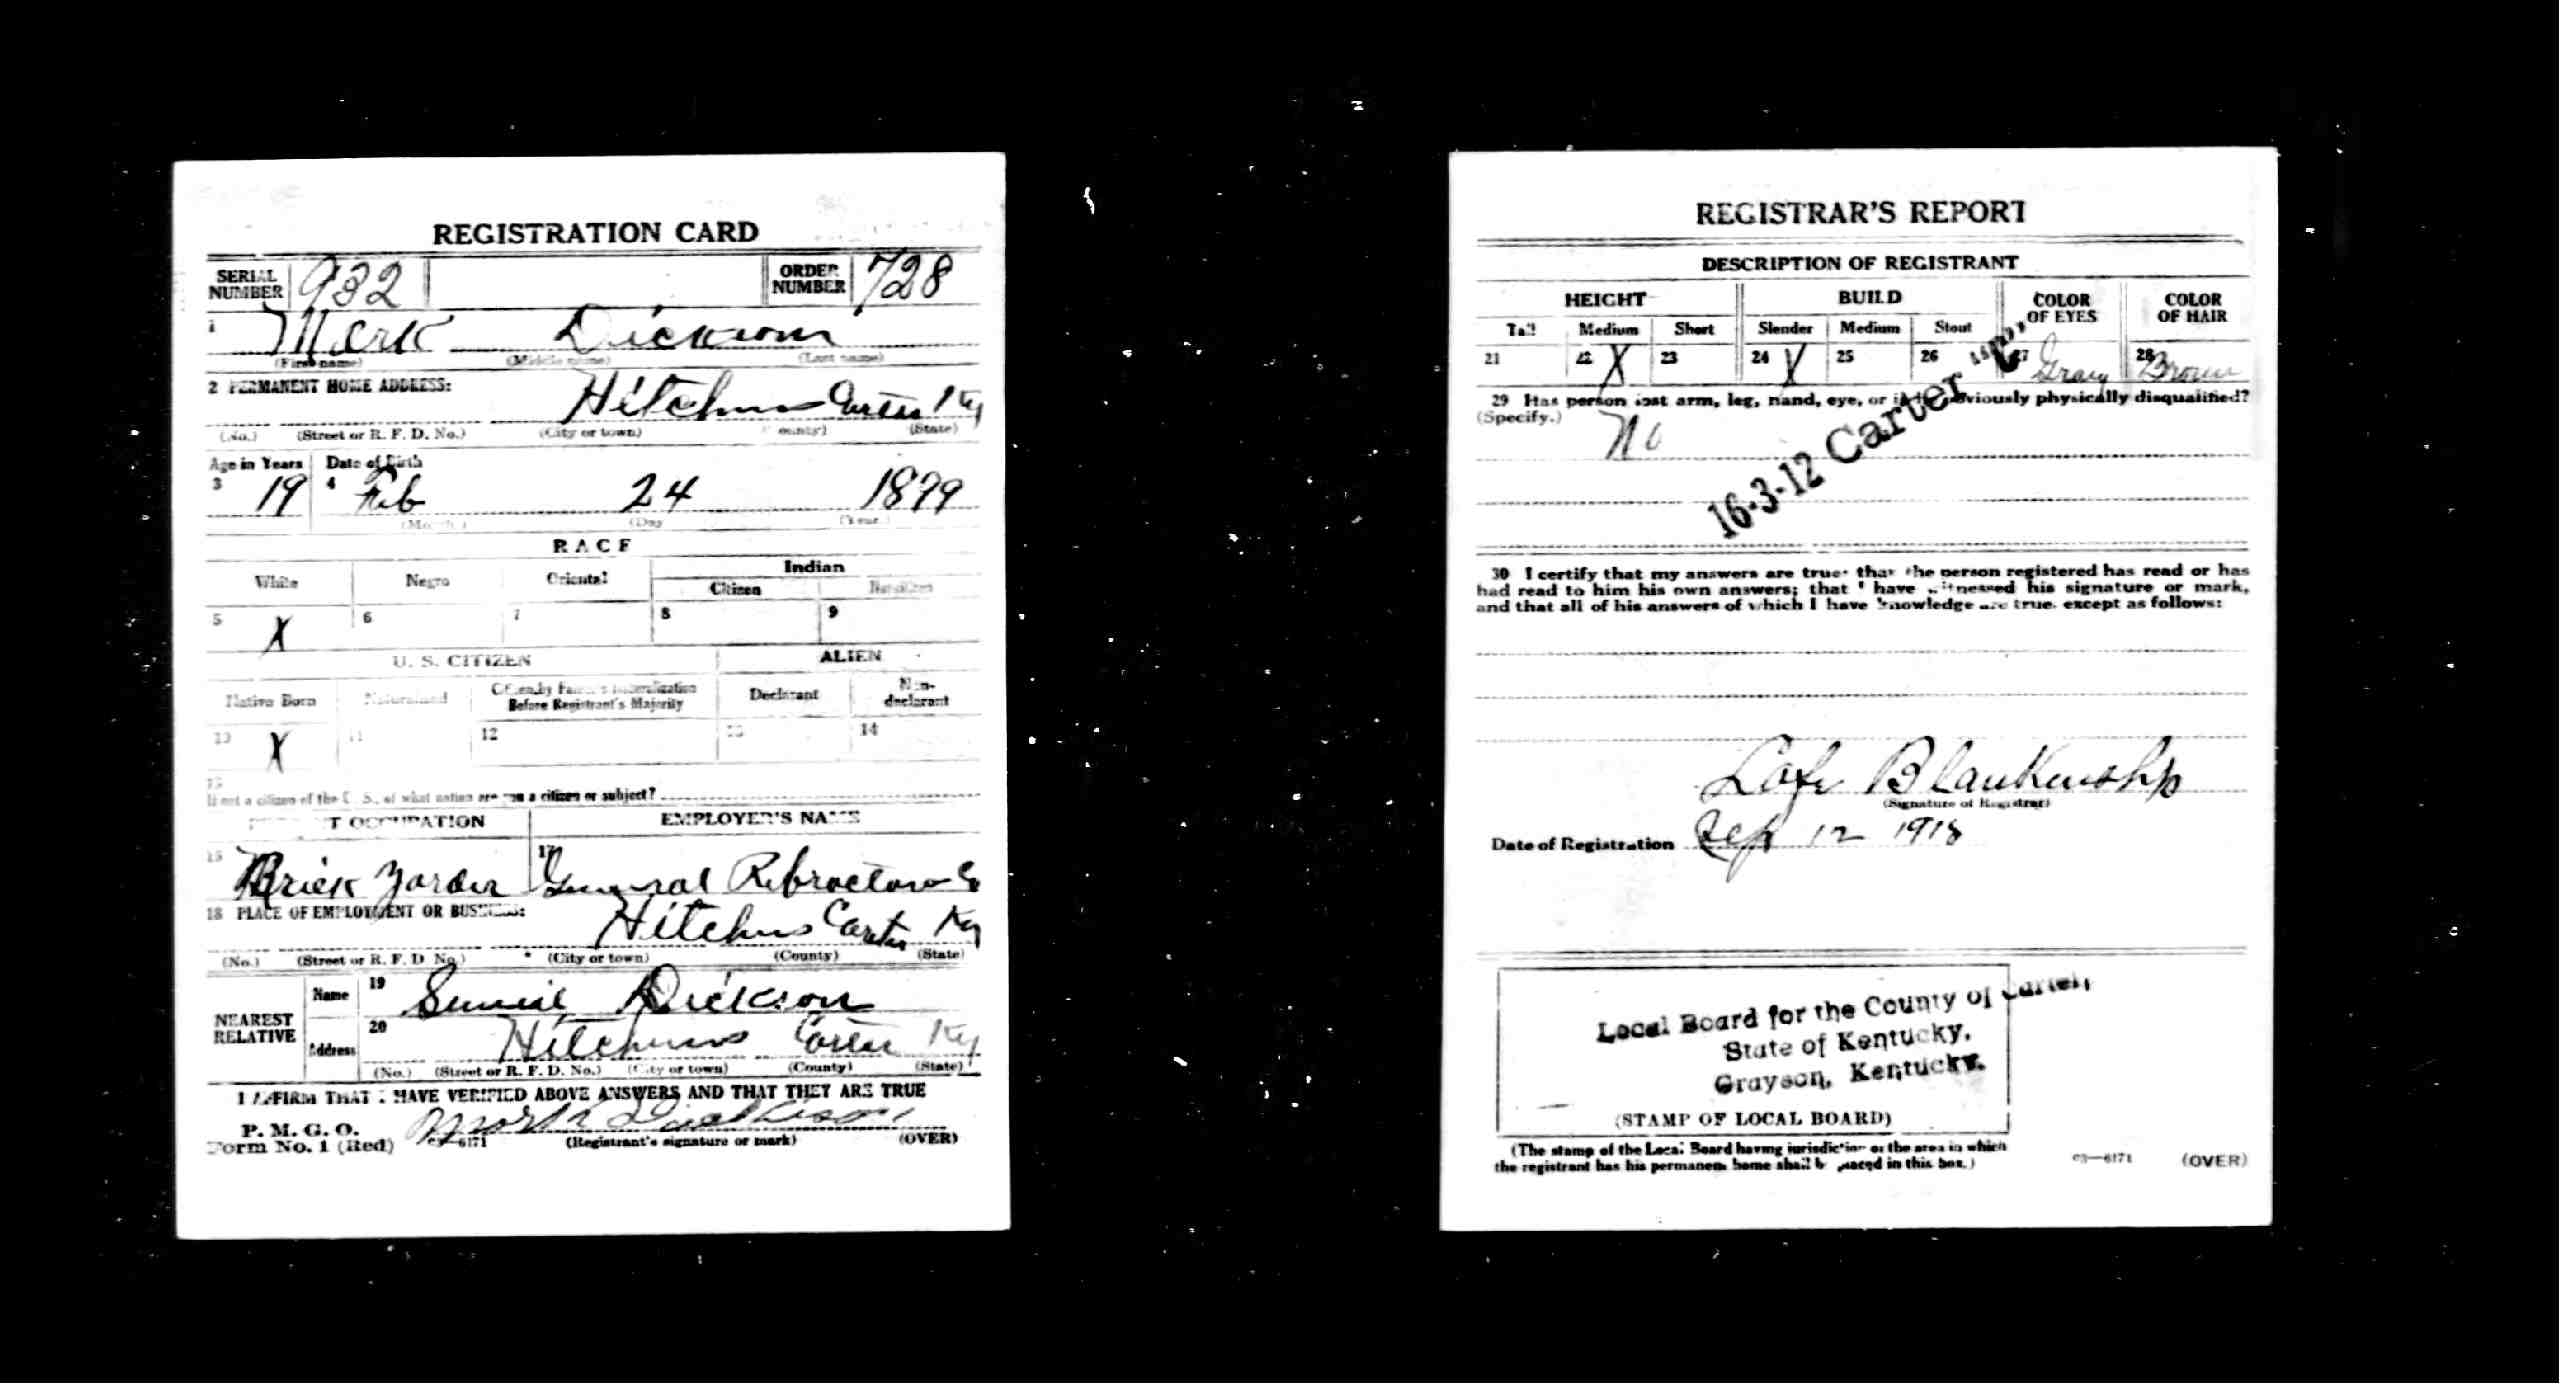 REGISTRATION CARD
SERIAL NUMBER 932 ORDER NUMBER 728
1 Mark Dickson
(First name) (Middle name) (Last name)
2 PERMANENT HOME ADDRESS: Hitchins Carter Ky
(No.) (Street or R. F. D. No.) (City or town) (County) (State)
Age in Years Date of Birth
3 19 4 Feb 24 1899
(Month.) (Day (Year.)
RACE
White Negro Oriental Indian
Citizen
5 X 6 7 8 9
U. S. CITIZEN ALIEN
Native Born Naturalized Citizen by Father's Naturalization Before Registrant's Majority Declarant Non-declarant
10 X 11 12 13 14
15
If not a citizen of the U. S., of what nation are you a citizen or subject?
OCCUPATION EMPLOYER'S NAME
16 Brick Yarder 17 General Refractories Co
18 PLACE OF EMPLOYMENT OR BUSINESS: Hitchins Carter Ky
(No.) (Street or R. F. D. No.) (City or town) (County) (State)
NEAREST RELATIVE Name 19 Dickson
Address 20 Hitchins Carter Ky
(No.) (Street or R. F. D. No.) (City or town) (County) (State)
I AFFIRM THAT I HAVE VERIFIED ABOVE ANSWERS AND THAT THEY ARE TRUE
P. M. G. O.
Form No. 1 (Red) 03—6171 (Registrant's signature or mark) (OVER)
REGISTRAR'S REPORT
DESCRIPTION OF REGISTRANT
HEIGHT BUILD COLOR OF EYES COLOR OF HAIR
Tall Medium Short Slender Medium Stout
21 22 X 23 24 X 25 26 27 Gray 28 Brown
29 Has person lost arm, leg, hand, eye, or is he obviously physically disqualified?
(Specify.) No
16-3-12 Carter "C"
30 I certify that my answers are true; that the person registered has read or has
had read to him his own answers; that I have witnessed his signature or mark,
and that all of his answers of which I have knowledge are true, except as follows:
Lafe Blankenship
(Signature of Registrar)
Date of Registration Sep 12 1918
Local Board for the County of Carter,
State of Kentucky,
Grayson, Kentucky.
(STAMP OF LOCAL BOARD)
(The stamp of the Local Board having jurisdiction of the area in which
the registrant has his permanent home shall be placed in this box.)
03—6171 (OVER)